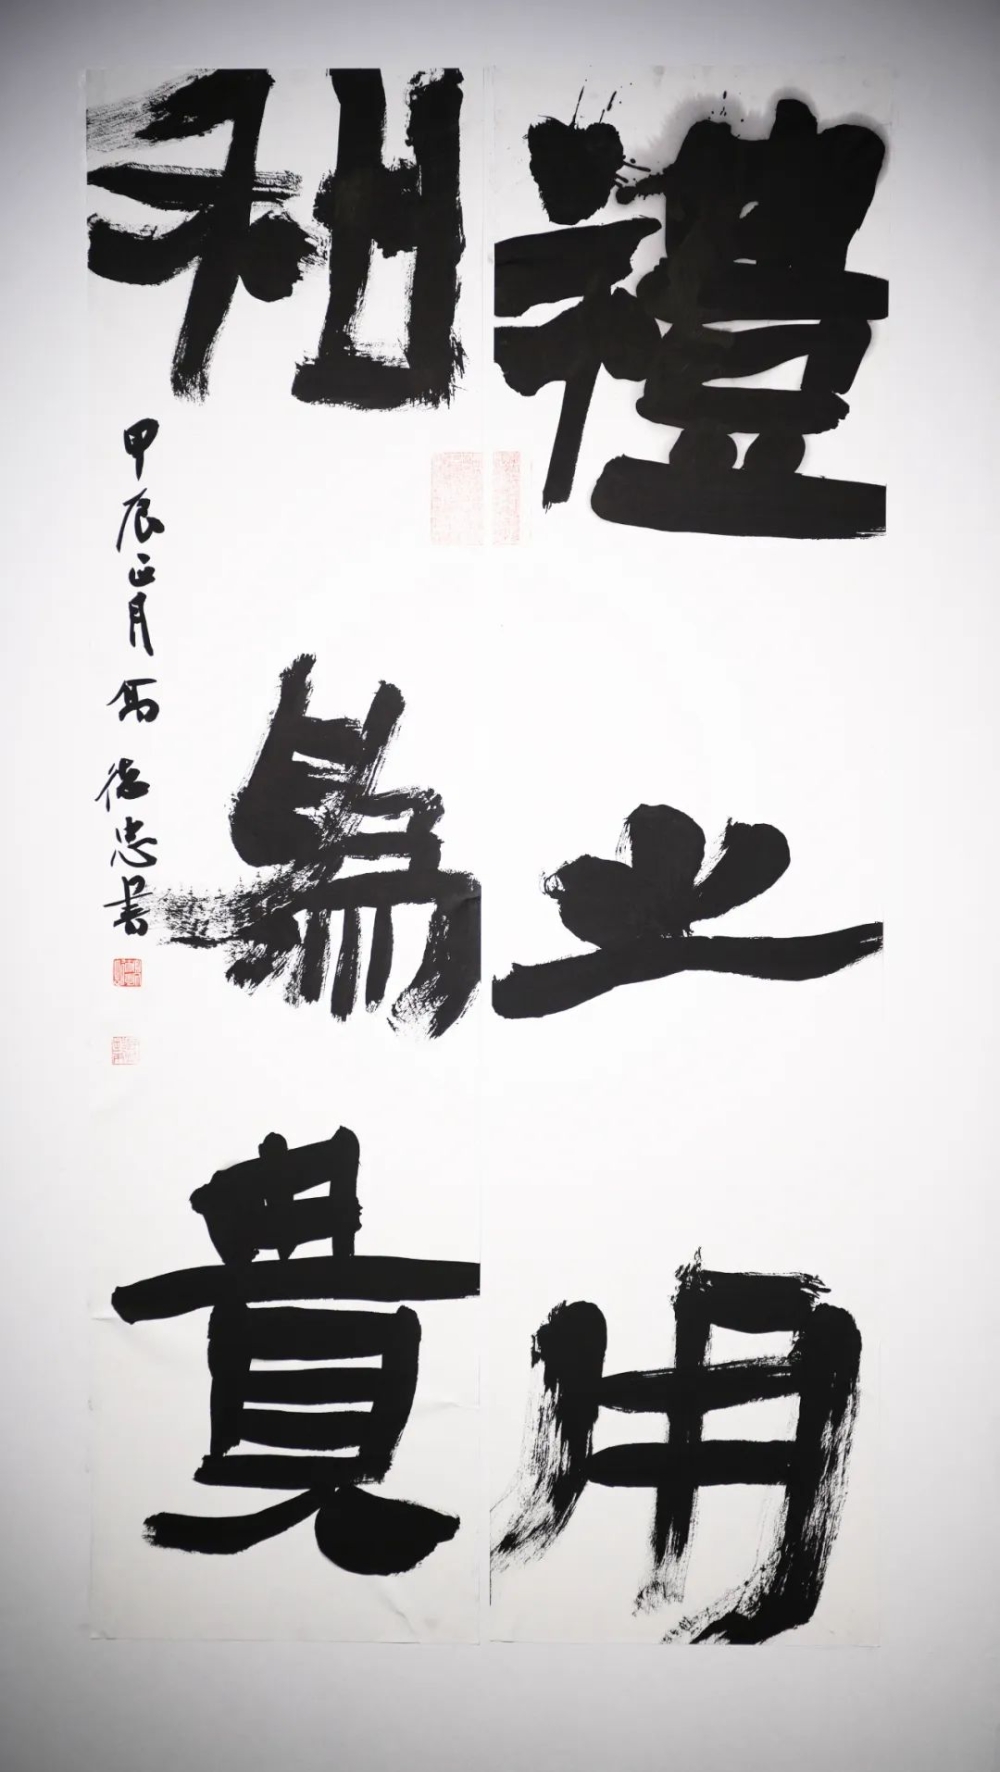 禮之用
和爲貴
甲辰正月 馮德忠书